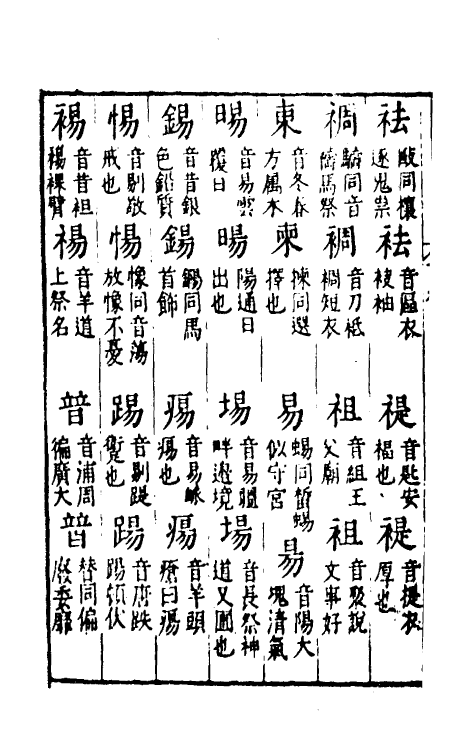 祛
敺同攘
逐鬼祟
袪
音區衣
袂袖
禔
音匙安
福也
褆
音提衣
厚也
禂
同音
禱馬祭
裯
音刀袛
裯短衣
祖
音組王
父廟
袓
音聚說
文事好
東
音冬春
方屬木
柬
揀同選
擇也
易
蜴同蜥蜴
似守宮
昜
音陽大
塊清氣
晹
音易雲
覆日
暘
陽通日
出也
埸
音易疆
畔邊境
場
音長祭神
道又圃也
錫
音昔銀
色鉛質
鍚
鐊同馬
首飾
痬
音易脉
痬也
瘍
音羊頭
瘡曰瘍
惕
音剔敬
戒也
愓
像同音蕩
放像不憂
踢
音剔踶
蹵也
踼
音唐跌
踼頓伏
裼
音昔袒
裼裸臂
禓
音羊道
上祭名
普
音浦周
徧廣大
暜
替同偏
廢委靡